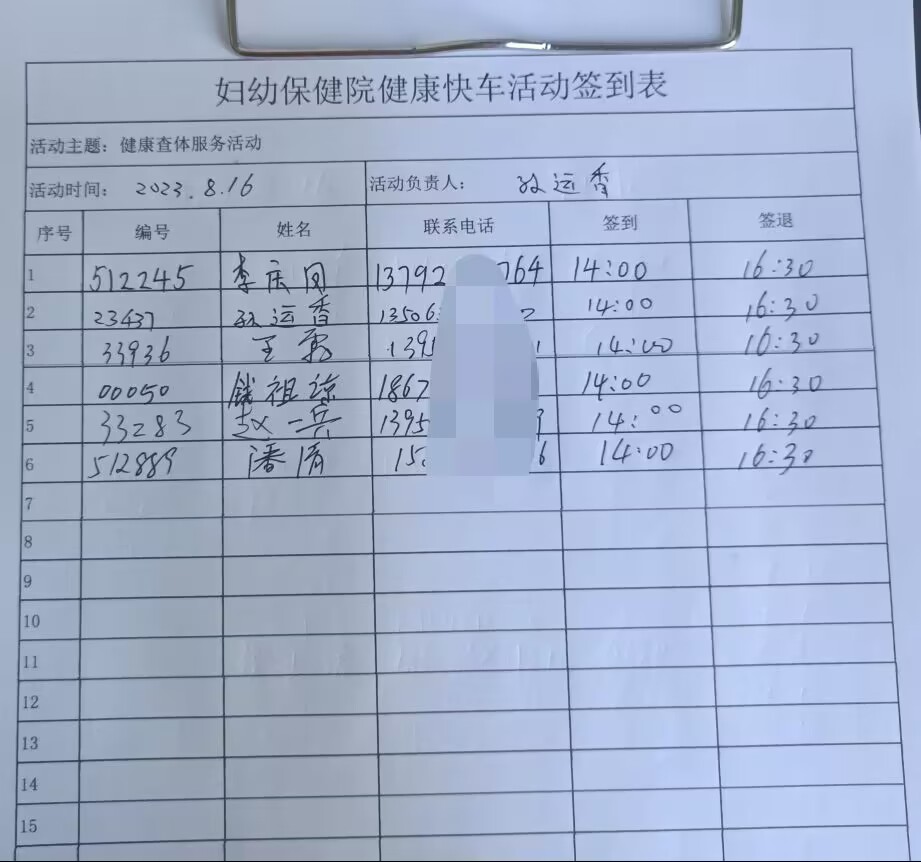 妇幼保健院健康快车活动签到表
活动主题：健康查体服务活动
活动时间： 2023.8.16 活动负责人： 孙运香
序号 编号 姓名 联系电话 签到 签退
1 512245 李庆同 13792 764 14:00 16:30
2 23437 孙运香 13506 2 14:00 16:30
3 33936 王 139 1 14:00 16:30
4 00050 钱祖琼 1867 14:00 16:30
5 33283 赵一兵 1395 9 14:00 16:30
6 512889 潘清 15 6 14:00 16:30
7
8
9
10
11
12
13
14
15